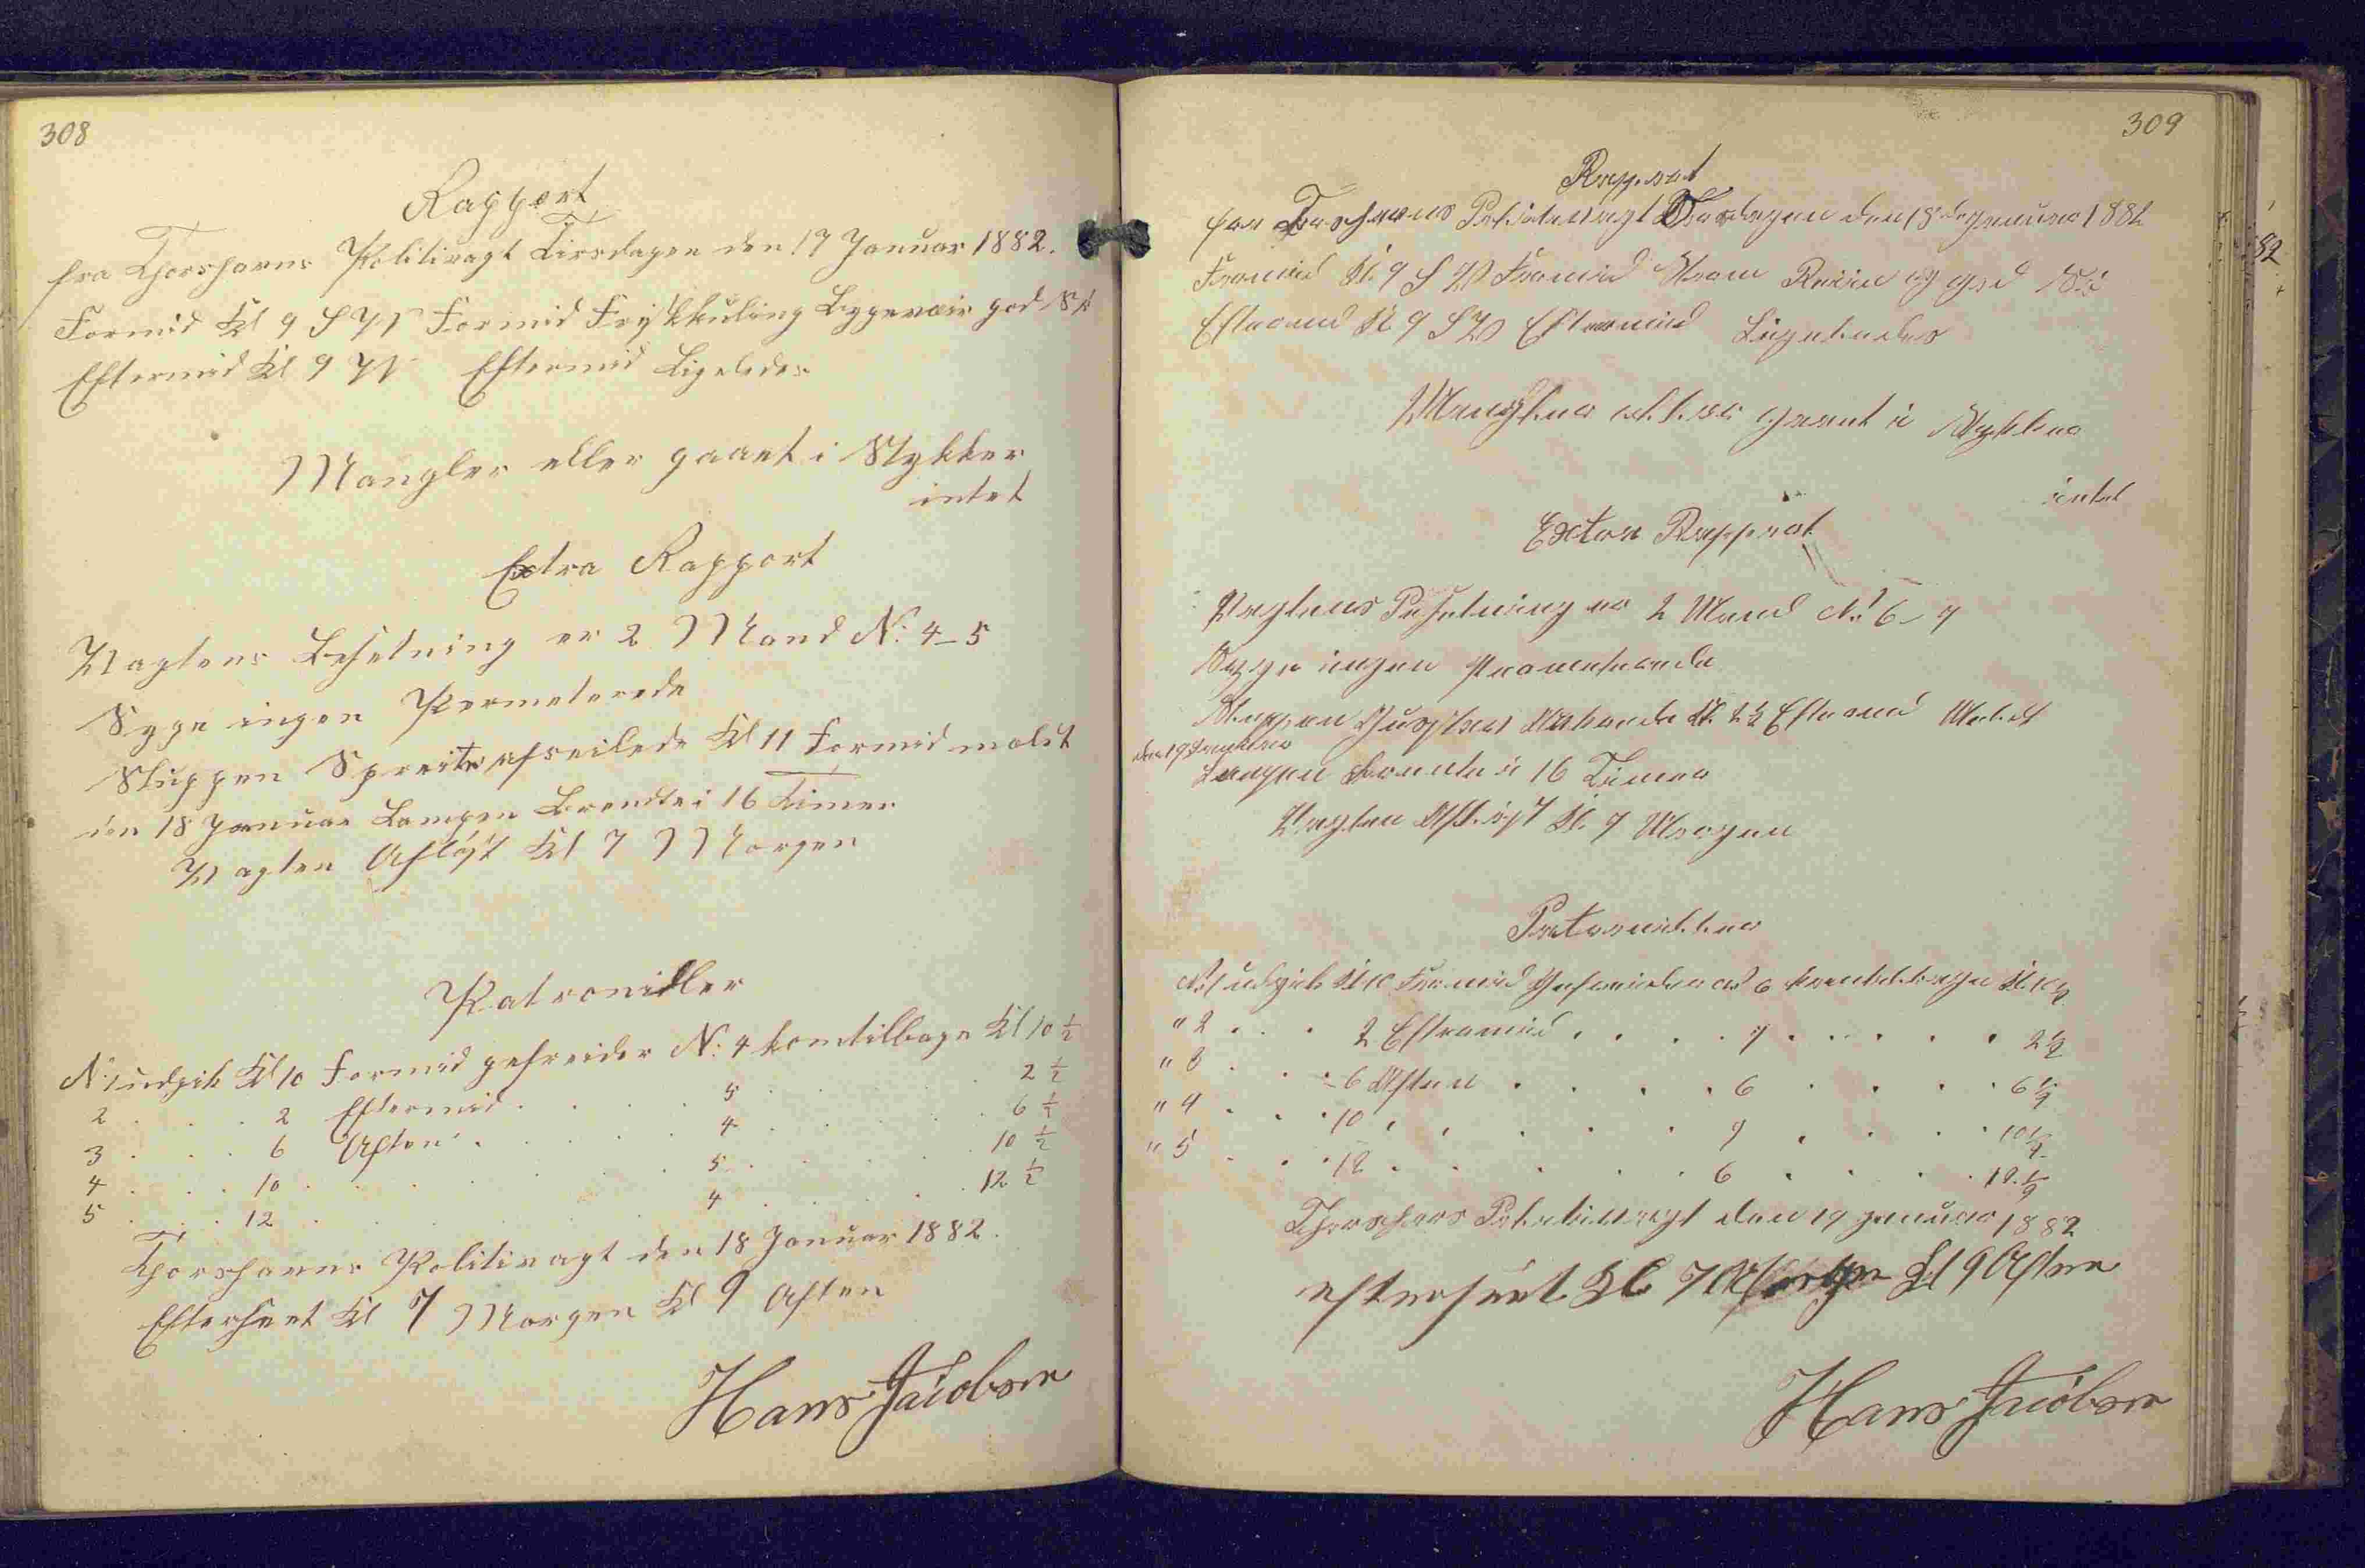 308
Rapport
fra Thorshavns Politivagt Tirsdagen den 17 Januar 1882.
Formid Kl 9 S W Formid Friskkuling Bygevær god Sigt
Eftermid Kl 9 W Eftermid Ligeledes
Mangler eller gaaet i Stykker
intet
Extra Rapport
Vagtens Besetning er 2 Mand No. 4-5
Syge ingen Permeterede
Sluppen afseilede Kl 11 Formid maldt
den 18 Januar Lampen Brendte i 16 Timer
Vagten Afløst Kl 7 Morgen
Patronieller
No. 1 udgik Kl 10 Formid gefreider No. 4 kom tilbage Kl 10 ½
2 . . . 2 Eftermid . . . . 5 . . . . 2 ½
3 . . . 6 Aften . . . . 4 . . . . 6 ½
4 . . . 10 . . . . 5 . . . . 10 ½
5 . . . 12 . . . . 4 . . . . 12 ½
Thorshavns Politivagt den 18 Januar 1882.
Efterseet Kl 7 Morgen Kl 9 Aften
Hans Jacobsen
309
Rapport
fra Politivagt den 18 Januar 1882
Formid Kl. 9 S W Formid og god
Eftermid Kl 9 SW Eftermid Ligeledes
Mangler eller gaaet i Stykker
intet
Extra Rapport
Vagtens Besetning er 2 Mand No. 6-7
Syge ingen Permeterede
Sluppen Kl. 2½ Eftermid
den 19 Januar
Lampen Brendte i 16 Timer
Vagten Afløst Kl. 7 Morgen
Patronieller
No. 1 udgik Kl 10 Formid Gefreider No 6 kom tilbage Kl. 10½
" 2 . . . 2 Eftermid . . . . 7 . . . . . 2 ½
" 3 . . . 6 Aften . . . . 6 . . . . 6 ½
" 4 . . . 10 . . . . . 7 . . . . 10 ½
" 5 . . . 12 . . . . . 6 . . . . 12 ½
Thorshavns Politivagt den 19 Januar 1882
efterseet Kl 7 Morgen Kl 9 Aften
Hans Jacobsen
82